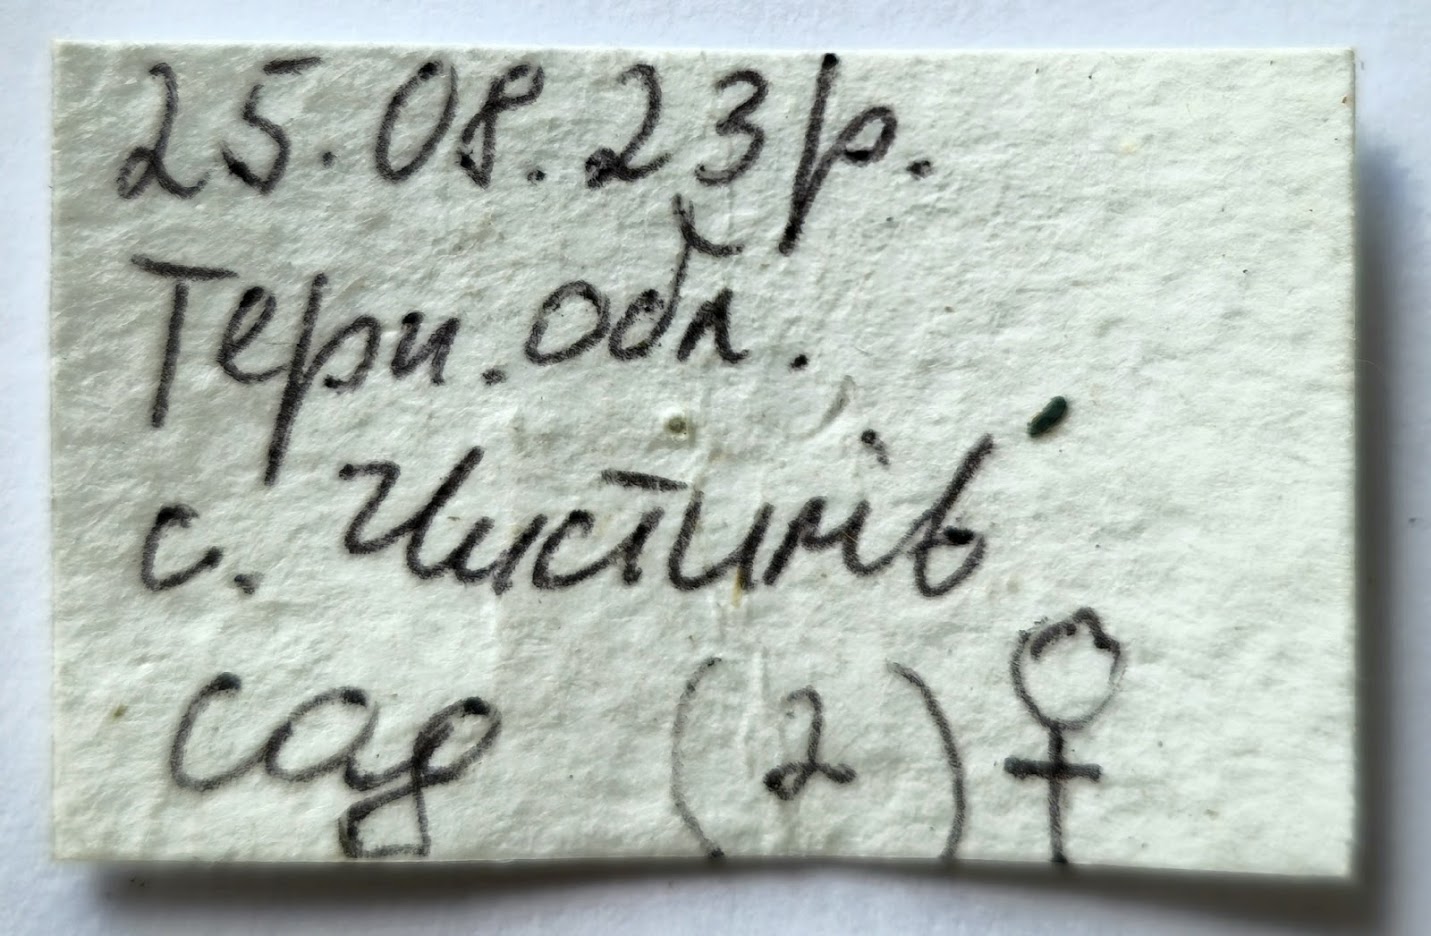 25.08.23р.
Терн. обл.
с. Чистилів
сад (2) ♀